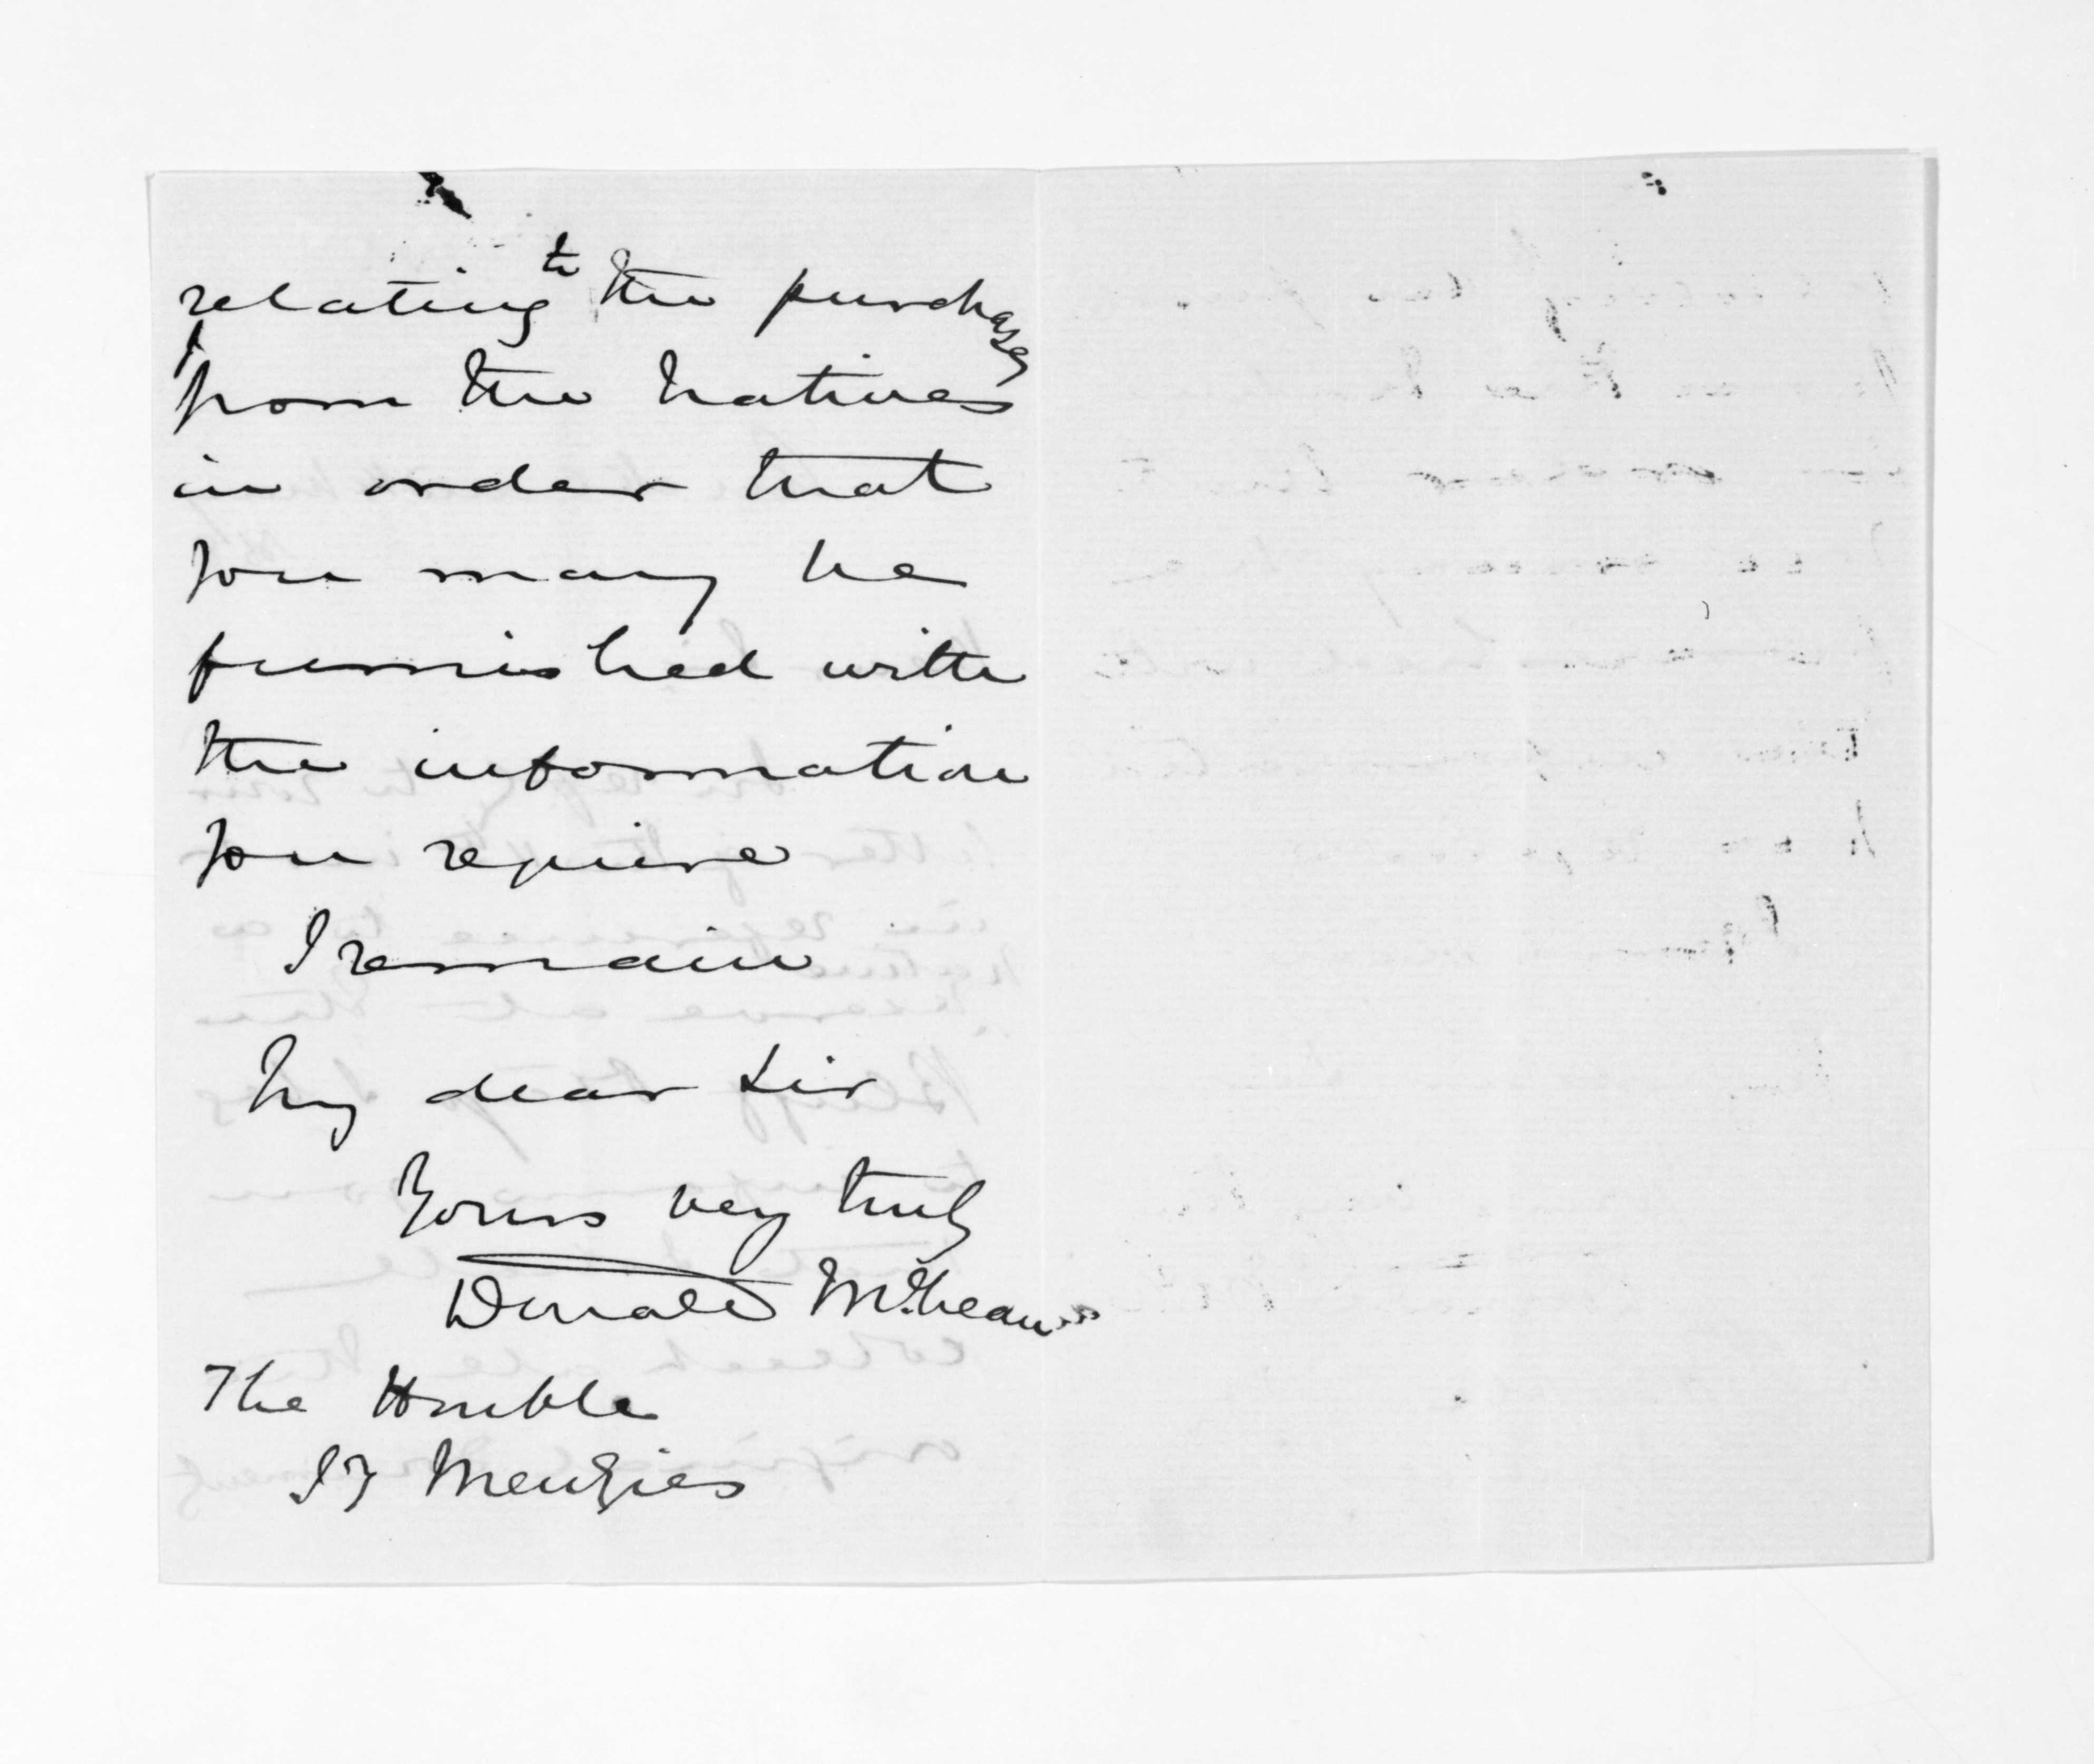 relating to the purchase
from the Natives
in order that
you may be
furnished with
the information
you require
I remain
My dear Sir
Yours very truly
Donald McLean
The Honble
I F Menzies